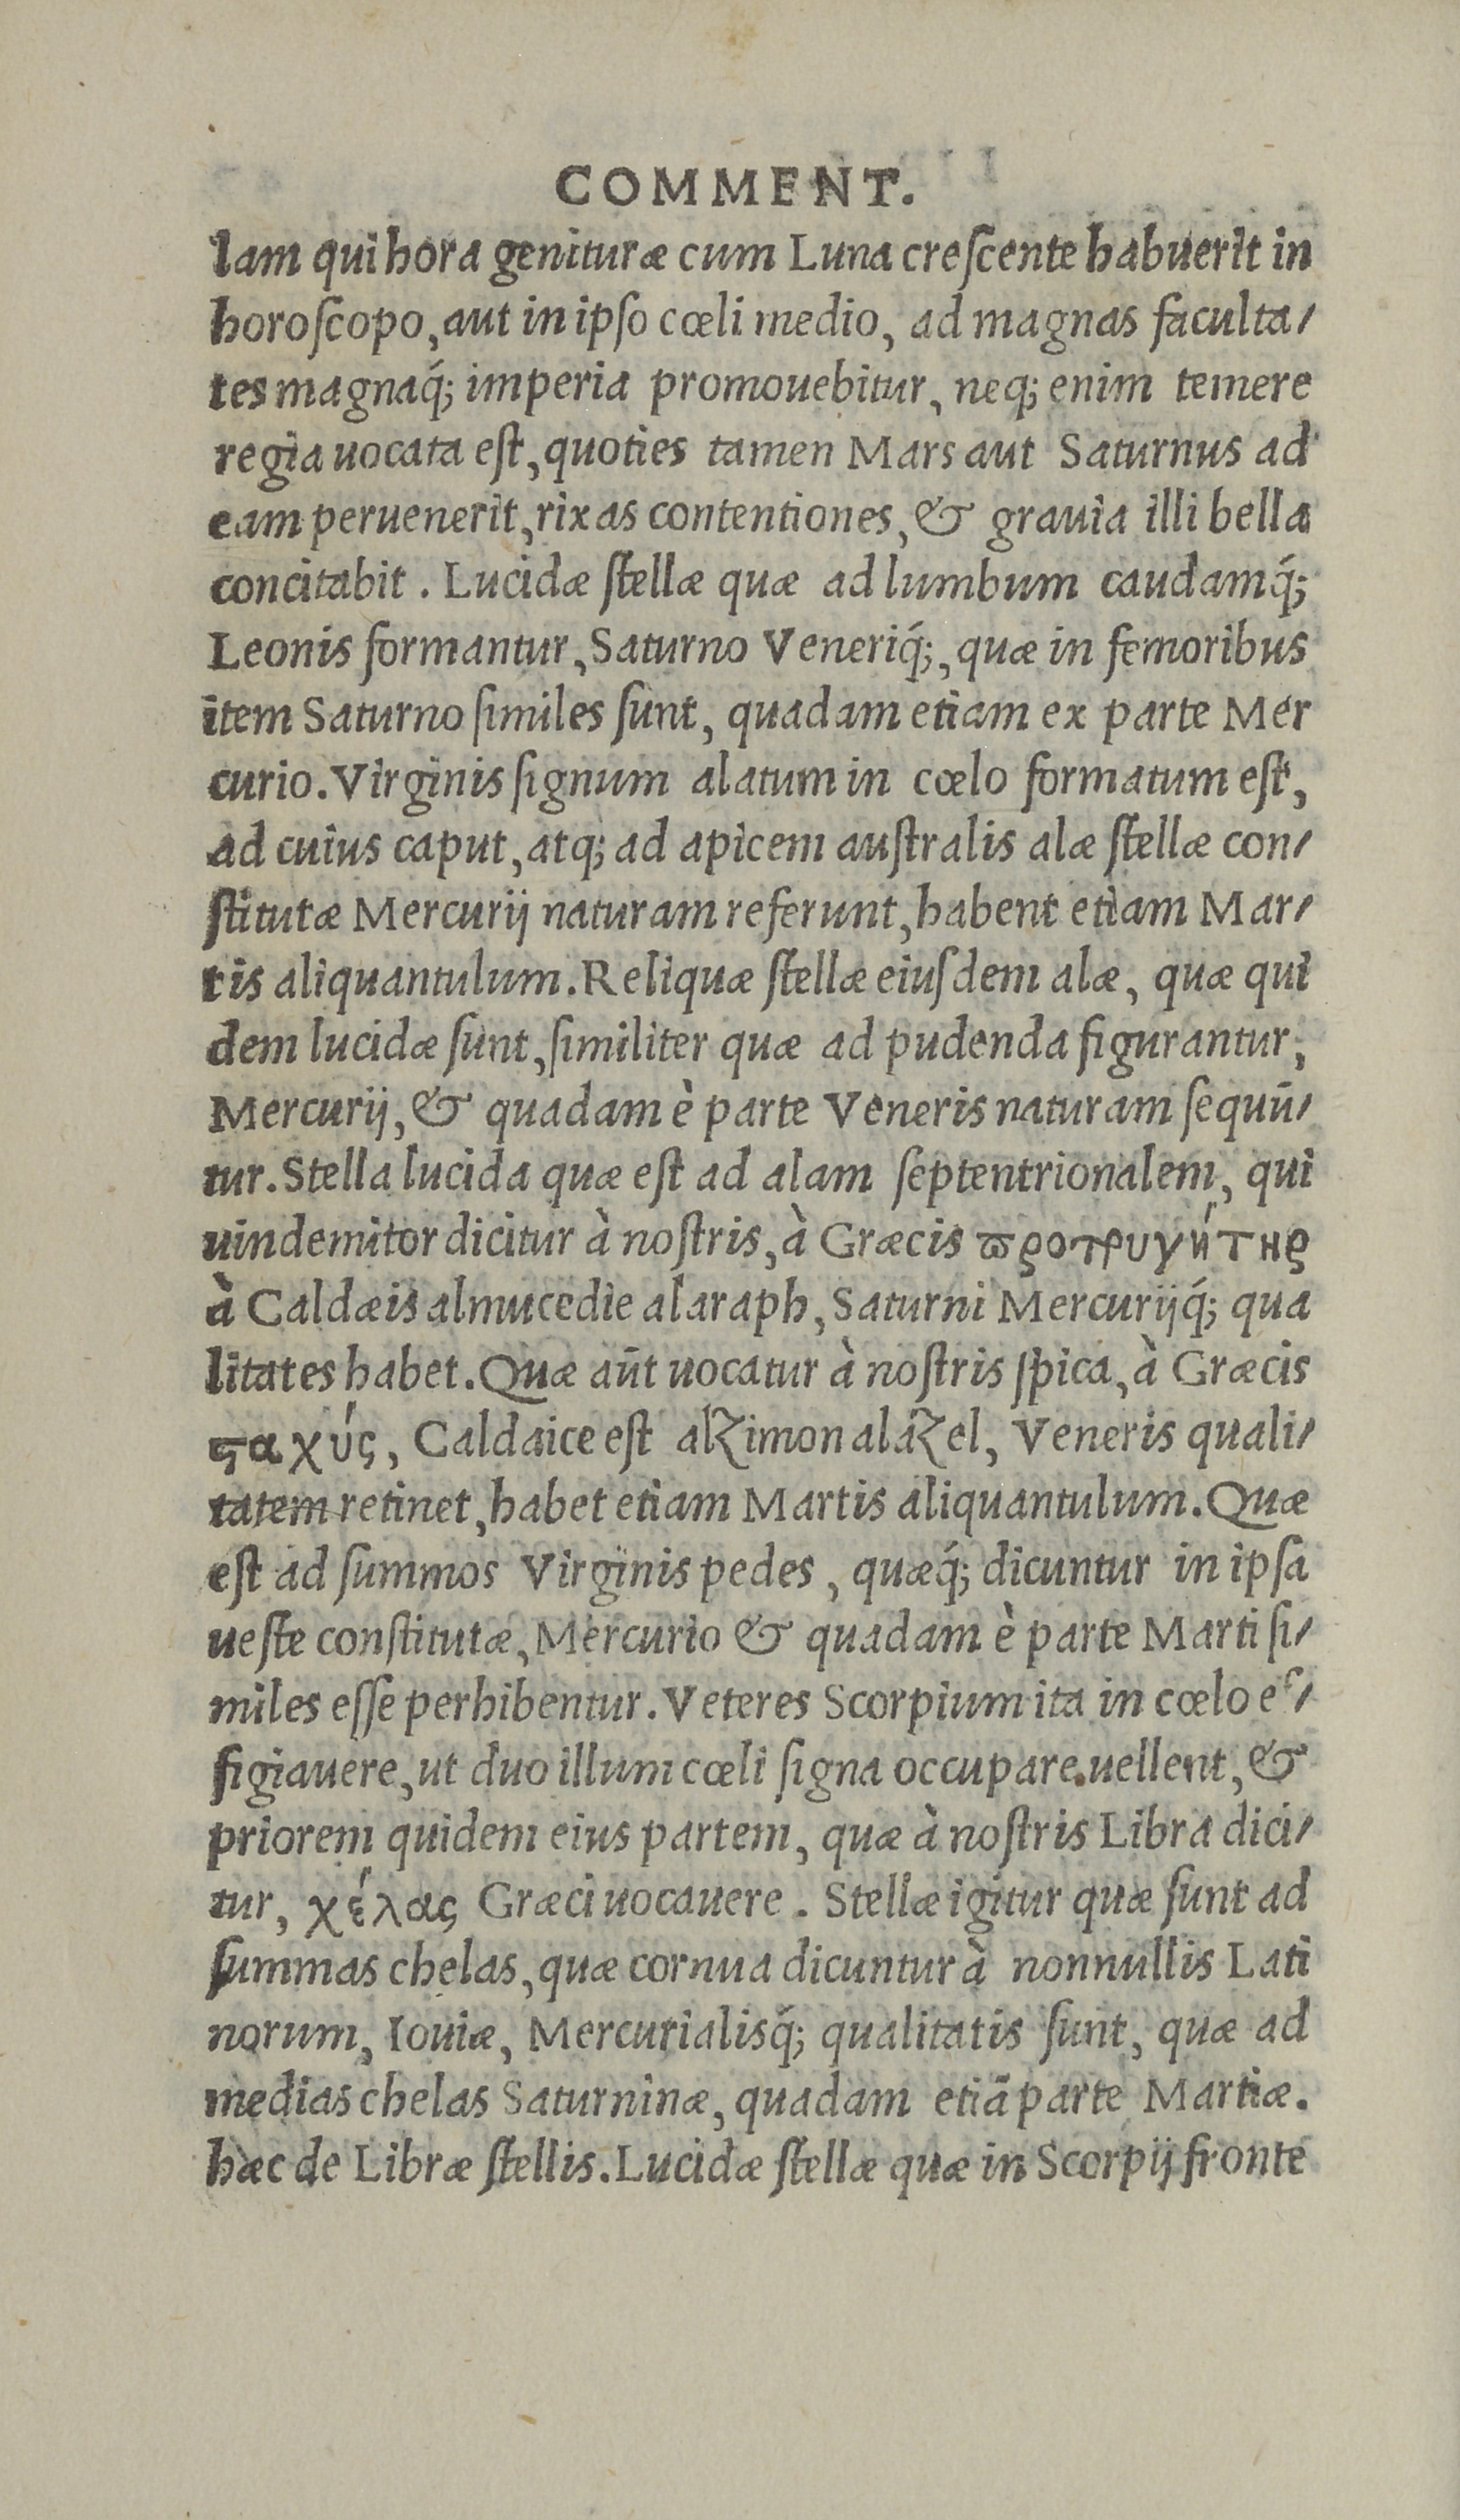 COMMENT.
Iam qui hora genituræ cum Luna creſcente habuerit in
horoſcopo, aut in ipſo cœli medio, ad magnas faculta/
tes magnaq́; imperia promouebitur, neq; enim temere
regia uocata eſt, quoties tamen Mars aut Saturnus ad
eam peruenerit, rixas contentiones, & grauia illi bella
concitabit. Lucidæ ſtellæ quæ ad lumbum caudamq́;
Leonis formantur, Saturno Veneriq́;, quæ in femoribus
item Saturno ſimiles ſunt, quadam etiam ex parte Mer
curio. Virginis ſignum alatum in cœlo formatum eſt,
ad cuius caput, atq; ad apicem auſtralis alæ ſtellæ con/
ſtitutæ Mercurij naturam referunt, habent etiam Mar/
tis aliquantulum. Reliquæ ſtellæ eiuſdem alæ, quæ qui
dem lucidæ ſunt, ſimiliter quæ ad pudenda figurantur,
Mercurij, & quadam è parte Veneris naturam ſequũ/
tur. Stella lucida quæ eſt ad alam ſeptentrionalem, qui
uindemitor dicitur à noſtris, à Græcis ϖροτρυγήτηρ
à Caldæis almucedie alaraph, Saturni Mercurijq́; qua
litates habet. Quæ aũt uocatur à noſtris ſpica, à Græcis
ϛαχύς, Caldaice eſt alzimon alázel, Veneris quali/
tatem retinet, habet etiam Martis aliquantulum. Quæ
eſt ad ſummos Virginis pedes, quæq́; dicuntur in ipſa
ueſte conſtitutæ, Mercurio & quadam è parte Marti ſi/
miles eſſe perhibentur. Veteres Scorpium ita in cœlo ef/
figiauere, ut duo illum cœli ſigna occupare uellent, &
priorem quidem eius partem, quæ à noſtris Libra dici/
tur, χέλας Græci uocauere. Stellæ igitur quæ ſunt ad
ſummas chelas, quæ cornua dicuntur à nonnullis Lati
norum, Iouiæ, Mercurialisq́; qualitatis ſunt, quæ ad
medias chelas Saturninæ, quadam etiã parte Martiæ.
hæc de Libræ ſtellis. Lucidæ ſtellæ quæ in Scorpij fronte